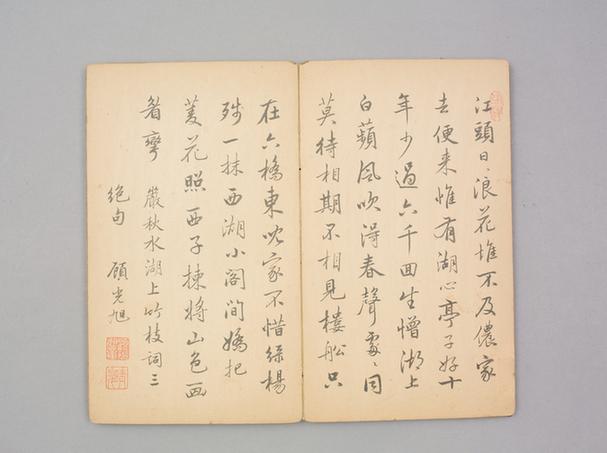 江頭日〻浪花堆不及儂家
去便来惟有湖心亭子好十
年少過六千回生憎湖上
白蘋風吹得春聲處〻同
莫待相期不相見樓船只
在六橋東兒家不惜綠楊
殘一抹西湖小閣間嬌把
菱花照西子揀將山色画
眉彎 嚴秋水湖上竹枝詞三
絕句 顧光旭